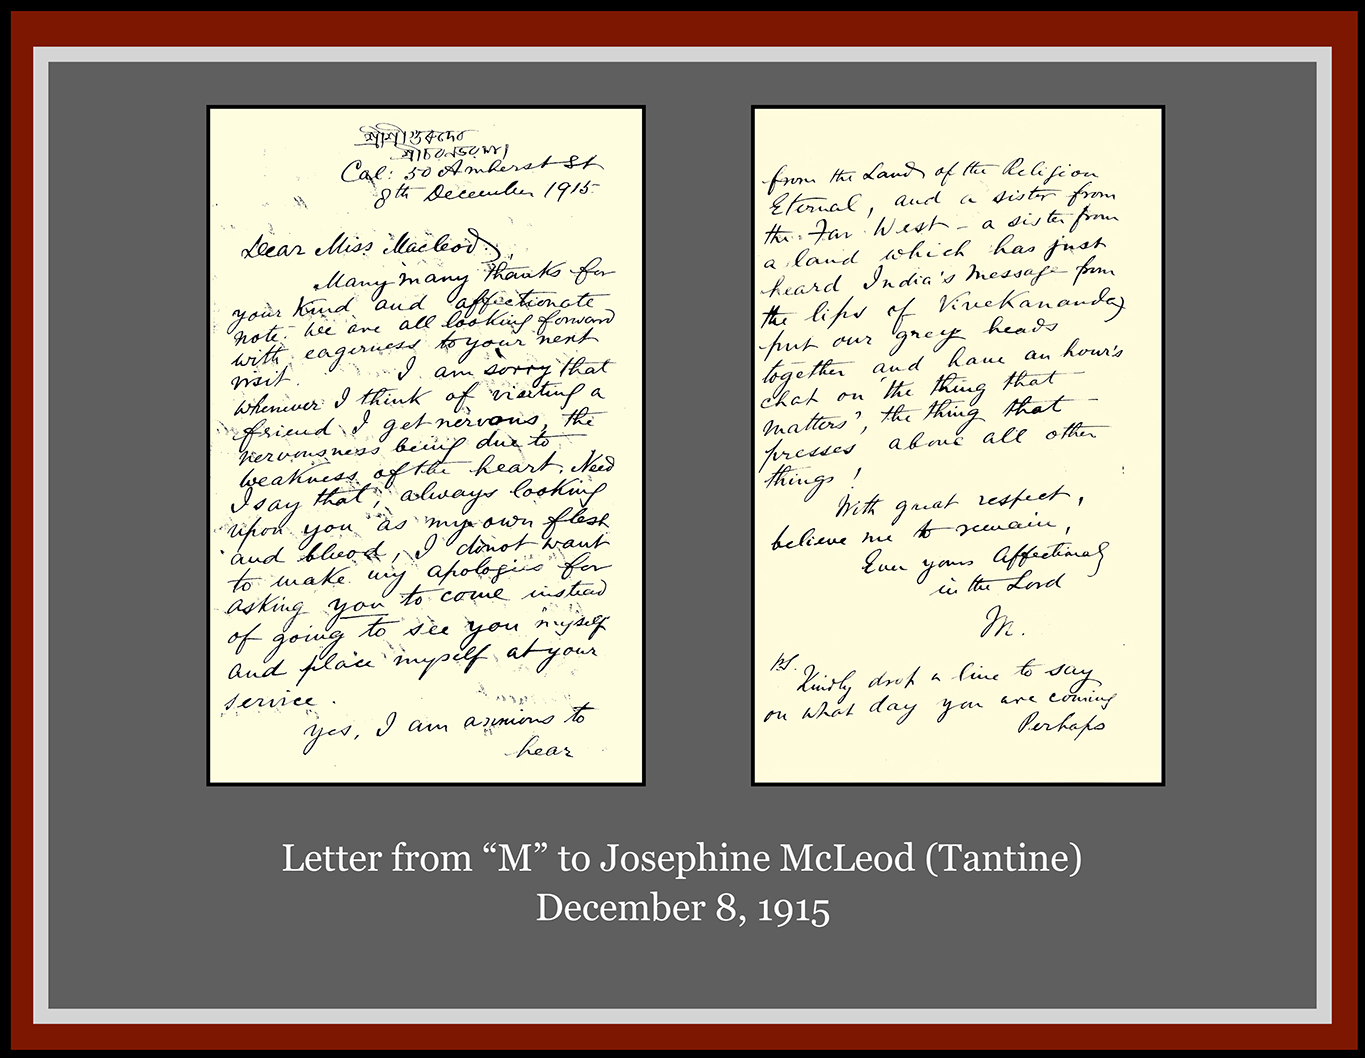 শ্রীশ্রীগুরুদেব
শ্রীচরণভরসা।
Cal: 50 Amherst St
8th December 1915.
Dear Miss Macleod,
Many many thanks for
your kind and affectionate
note. We are all looking forward
with eagerness to your next
visit. I am sorry that
whenever I think of visiting a
friend I get nervous, the
nervousness being due to
weakness of the heart. Need
I say that, always looking
upon you as my own flesh
and blood, I donot want
to make my apologies for
asking you to come instead
of going to see you myself
and place myself at your
service.
Yes, I am anxious to
hear
from the Land of the Religion
Eternal, and a sister from
the Far West – a sister from
a land which has just
heard India's message from
the lips of Vivekananda,
put our grey heads
together and have an hour's
chat on 'the thing that
matters', the thing that
presses above all other
things!
With great respect,
believe me to remain,
Ever yours Affectionately
in the Lord
M.
P.S.
Kindly drop a line to say
on what day you are coming
Perhaps
Letter from “M” to Josephine McLeod (Tantine)
December 8, 1915